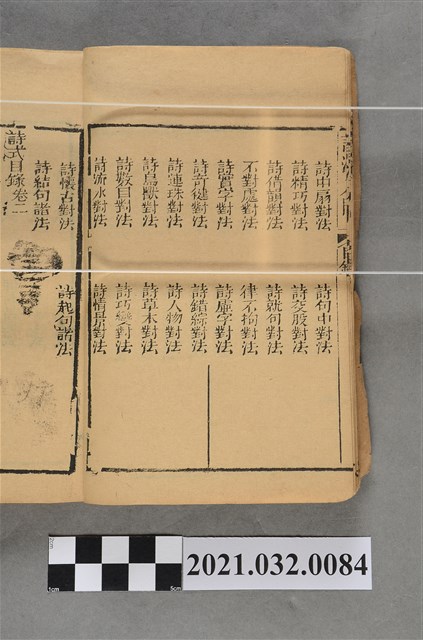 詩中扇對法 詩句中對法
詩精巧對法 詩交股對法
詩借韻對法 詩就句對法
不對處對法 律不拘對法
詩實字對法 詩虛字對法
詩奇健對法 詩錯綜對法
詩連珠對法 詩人物對法
詩鳥獸對法 詩草木對法
詩數目對法 詩巧變對法
詩流水對法 詩情景對法
詩懷古對法 詩起句諸法
詩結句諸法
詩式目錄卷二
2cm
1cm
5cm
2021.032.0084